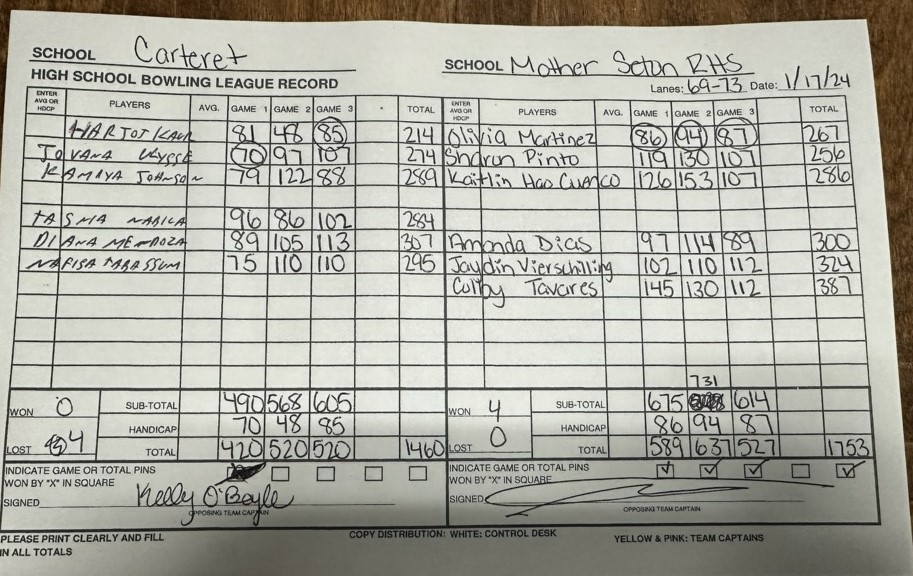 SCHOOL Carteret
SCHOOL Mother Seton RHS
HIGH SCHOOL BOWLING LEAGUE RECORD
Lanes: 69-73 Date: 1/17/24
ENTER AVG OR HDCP PLAYERS AVG. GAME 1 GAME 2 GAME 3 TOTAL ENTER AVG OR HDCP PLAYERS AVG. GAME 1 GAME 2 GAME 3 TOTAL
HARJOT KAUR 81 48 85 214 Olivia Martinez 86 94 87 267
JOVANA ULYSSE 70 97 107 274 Sharon Pinto 119 130 107 256
KAMIYA JOHNSON 79 122 88 289 Kaitlin Hao Cuenco 126 153 107 286
TASMIA NABILA 96 86 102 284
DIANA MENDOZA 89 105 113 307 Amanda Dias 97 114 89 300
NAFISA TARASSUM 75 110 110 295 Jaydin Vierschilling 102 110 112 324
Colby Tavares 145 130 112 387
731
WON 0 SUB-TOTAL 490 568 605 WON 4 SUB-TOTAL 675 614
HANDICAP 70 48 85 HANDICAP 86 94 87
LOST 4 TOTAL 420 520 520 1460 LOST 0 TOTAL 589 637 527 1753
INDICATE GAME OR TOTAL PINS WON BY "X" IN SQUARE
INDICATE GAME OR TOTAL PINS WON BY "X" IN SQUARE
SIGNED Kelly O'Boyle
SIGNED
OPPOSING TEAM CAPTAIN
OPPOSING TEAM CAPTAIN
PLEASE PRINT CLEARLY AND FILL IN ALL TOTALS
COPY DISTRIBUTION: WHITE: CONTROL DESK
YELLOW & PINK: TEAM CAPTAINS